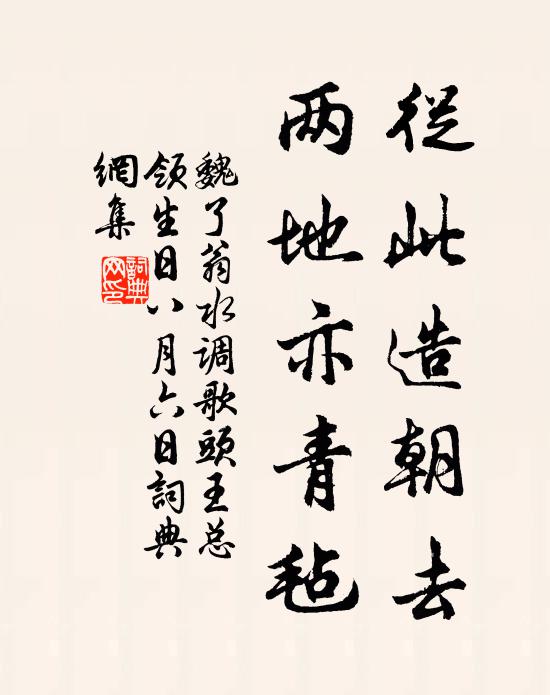 從此造朝去
两地亦青毡
魏了翁水调歌頭王总
领生日八月六日詞典
網集
詞典
网印